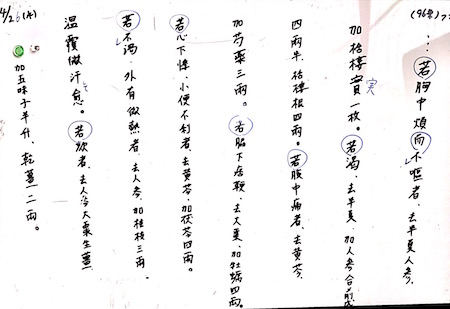 (96条)
…若胸中煩而不嘔者、去半夏人参、
加栝樓實一枚。若渴、去半夏、加人参合前成
実
四兩半、栝樓根四兩。若腹中痛者、去黄芩、
加芍薬三兩。若脇下痞鞕、去大棗、加牡蛎四兩。
若心下悸、小便不利者、去黄芩、加茯苓四兩。
若不渴、外有微熱者、去人参、加桂枝三兩、
温覆微汗愈。若欬者、去人参大棗生薑
加五味子半升、乾薑二兩。
4/26(水)